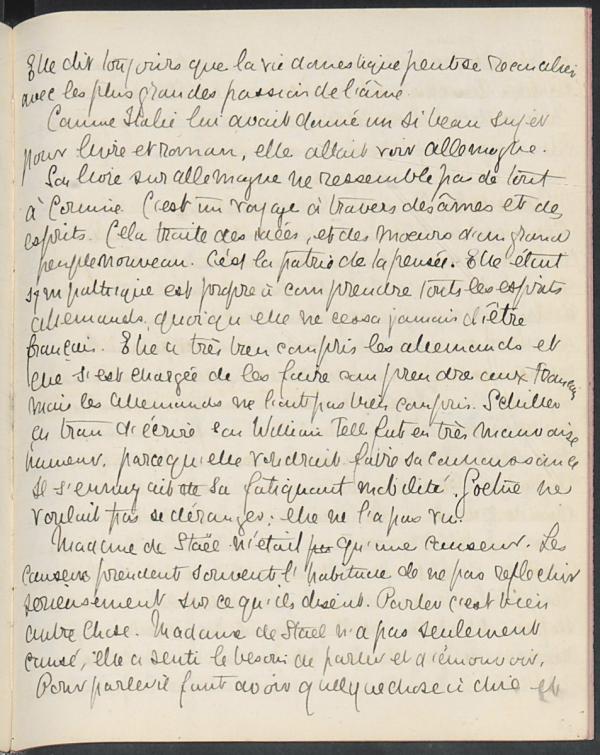 Elle dit toujours que la vie domestique peut se reconcilier
avec les plus grandes passions de l'âme.
Comme Italie lui avait donné un si beau sujet
pour livre et roman, elle allait voir allemagne.
Son livre sur allemagne ne ressemble pas de tout
à Corinne. C'est un voyage à travers des âmes et des
esprits. Cela traite des idées, et des moeurs d'un grand
peuple nouveau. C'est la patrie de la pensée. Elle étent
sympathique est propre à comprendre touts les esprits
allemands, quoiqu'elle ne cessa jamais d'être
français. Elle a très bien compris les allemands et
elle s'est chargée de les faire comprendre aux Français
mais les allemands ne l'ont pas bien compris. Schiller
en train d'écrire son William Tell fut en très mauvaise
humeur, parce qu'elle voudrait faire sa connaissance
Il s'ennuyait de sa fatiguant mobilité. Goethe ne
voulait pas se déranger; elle ne l'a pas vu.
Madame de Staël n'était qu'une causeur. Les
causeurs prendent souvent l'habitude de ne pas reflechir
serieusement sur ce qu'ils disent. Parler c'est bien
autre chose. Madame de Staël n'a pas seulement
causé, elle a senti le besoin de parler et d'émouvoir.
Pour parler il faut avoir quelque chose à dire et